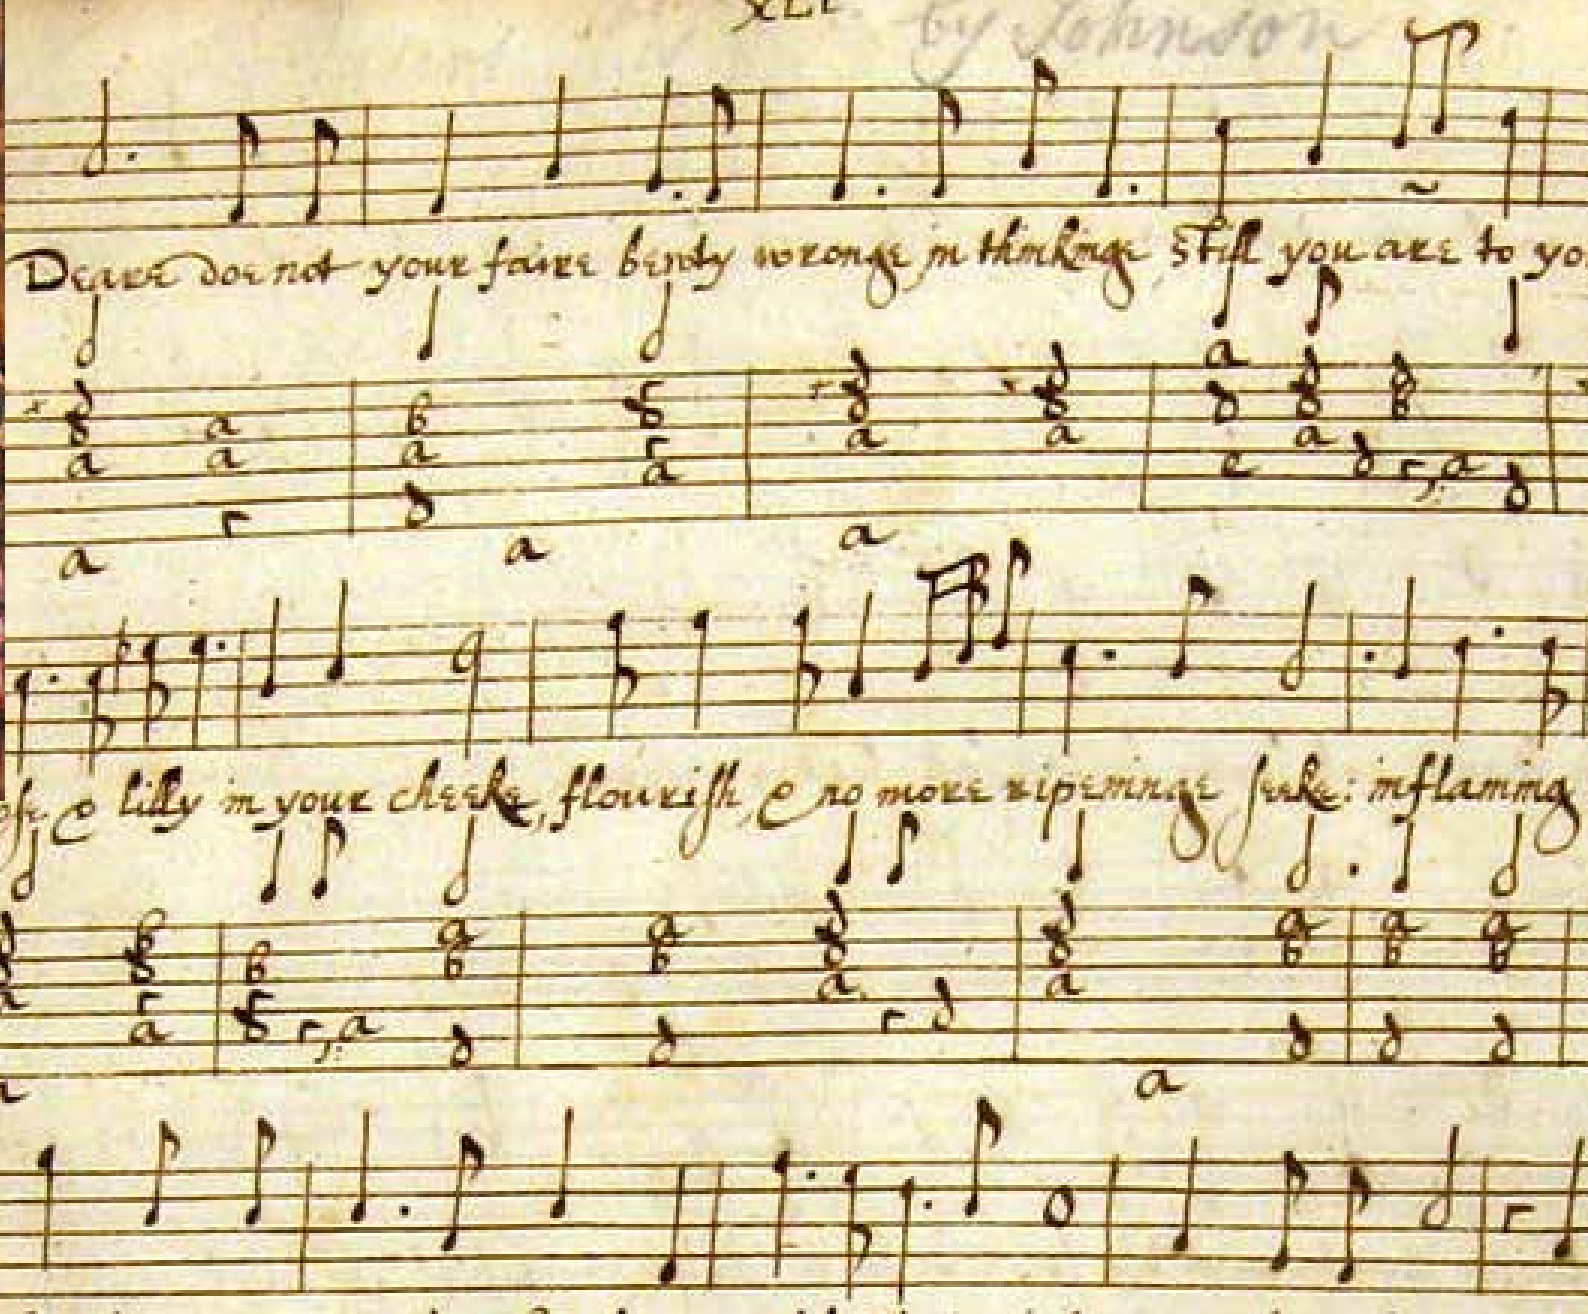 XLI
by Johnson
Deare doe not your faire bewty wronge in thinkinge still you are to yo
ose & lilly in your cheeke, flourish, & no more ripeninge seeke: inflaming